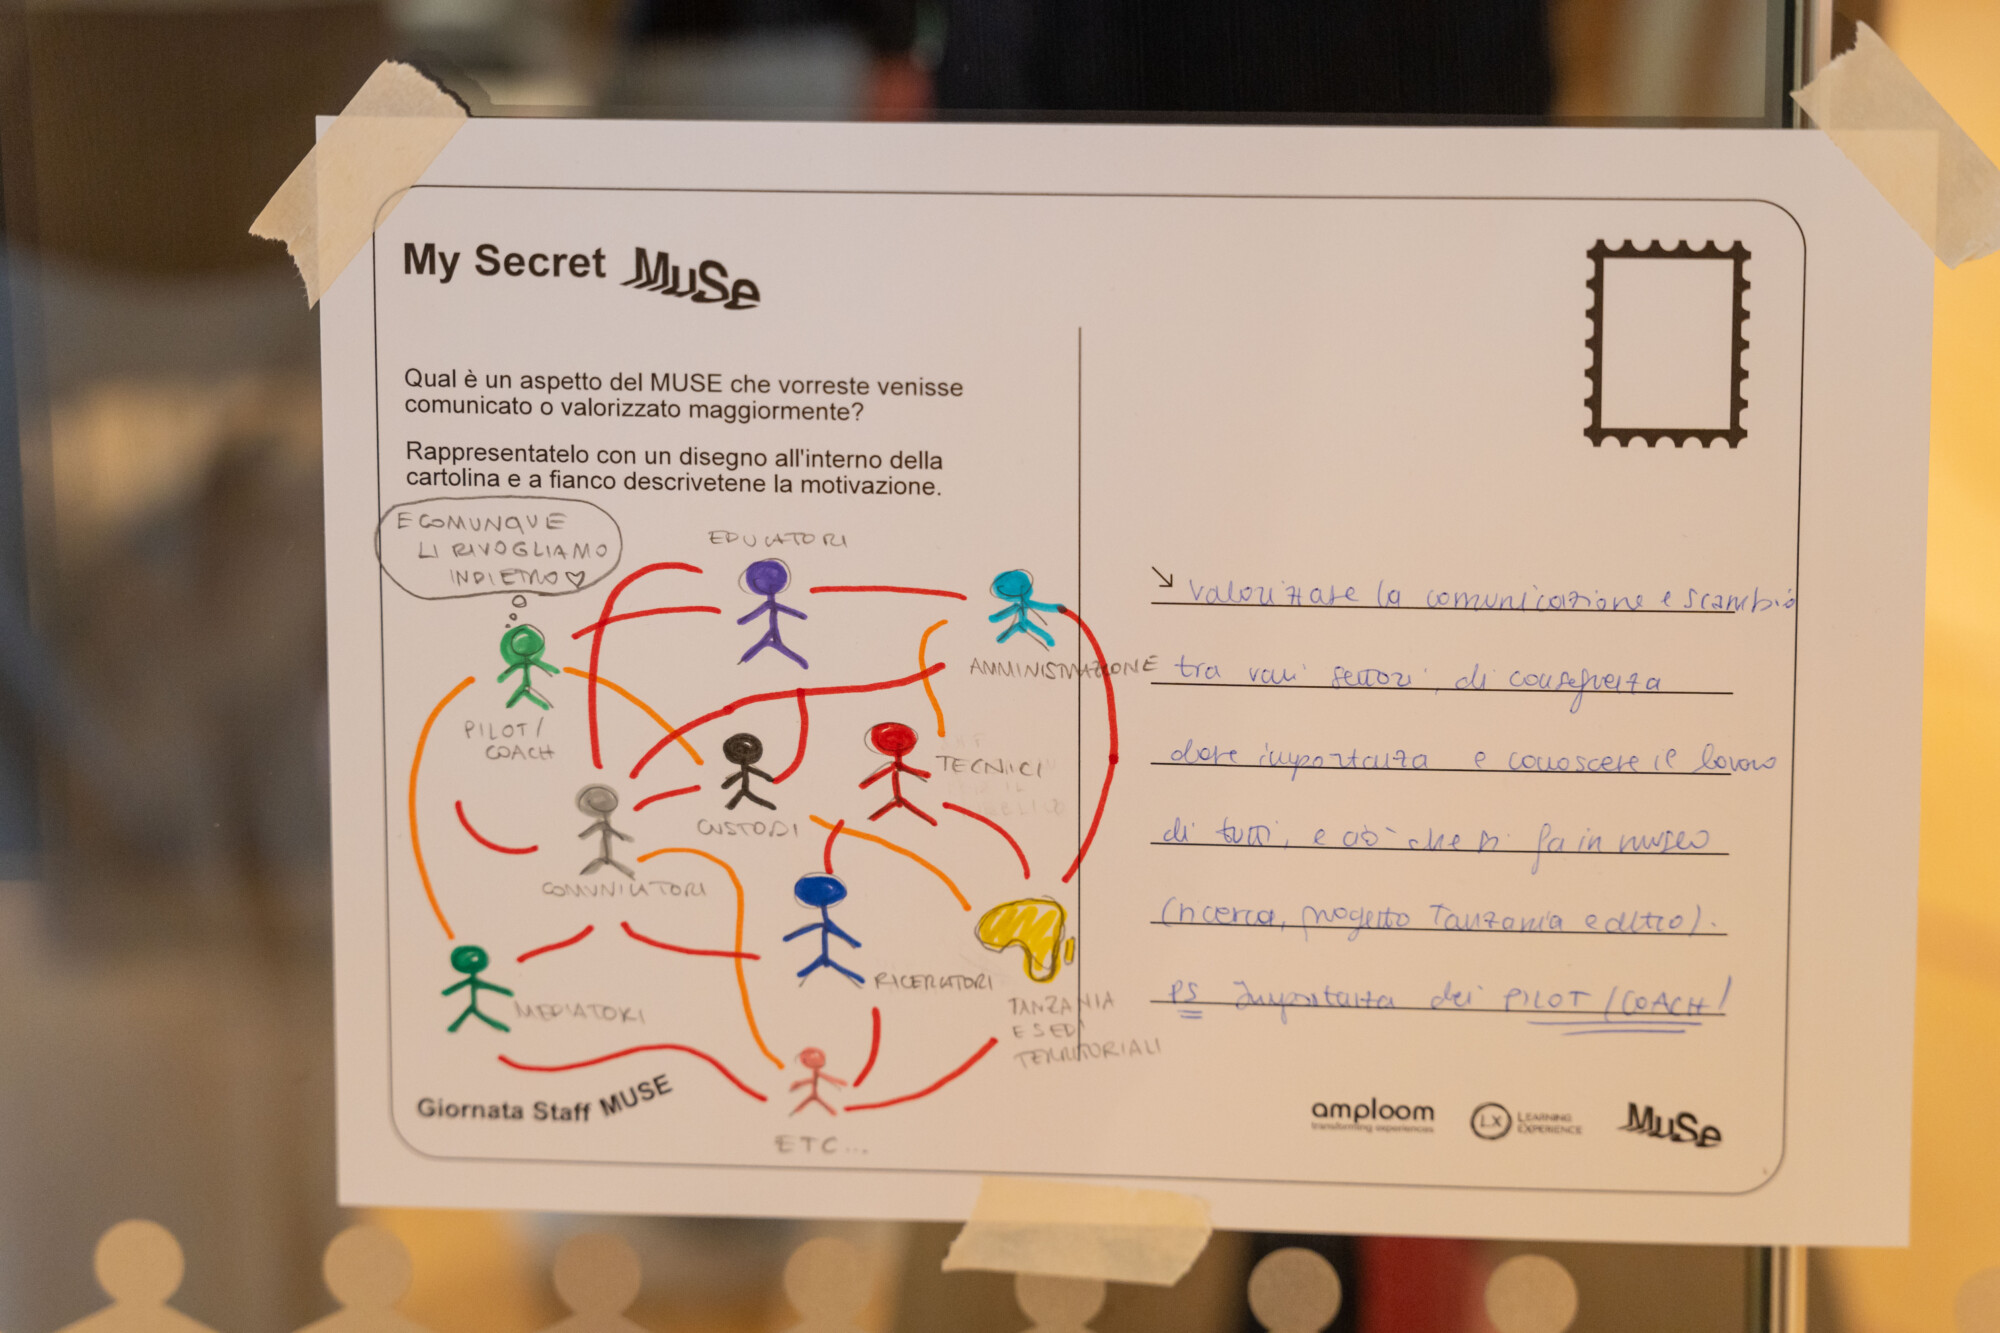 My Secret MUSe
Qual è un aspetto del MUSE che vorreste venisse
comunicato o valorizzato maggiormente?
Rappresentatelo con un disegno all'interno della
cartolina e a fianco descrivetene la motivazione.
E COMUNQUE
LI RIVOGLIAMO
INDIETRO ♡
EDUCATORI
AMMINISTRAZIONE
PILOT/
COACH
TECNICI
CUSTODI
COMUNICATORI
RICERCATORI
MEDIATORI
TANZANIA
E SEDI
TERRITORIALI
ETC...
Giornata Staff MUSE
↘ valorizzare la comunicazione e scambio
tra vari settori, di conseguenza
dare importanza e conoscere il lavoro
di tutti, e ciò che si fa in museo
(ricerca, progetto Tanzania e altro).
PS Importanza dei PILOT/COACH!
amploom
transforming experiences
LX LEARNING
EXPERIENCE
MUSe